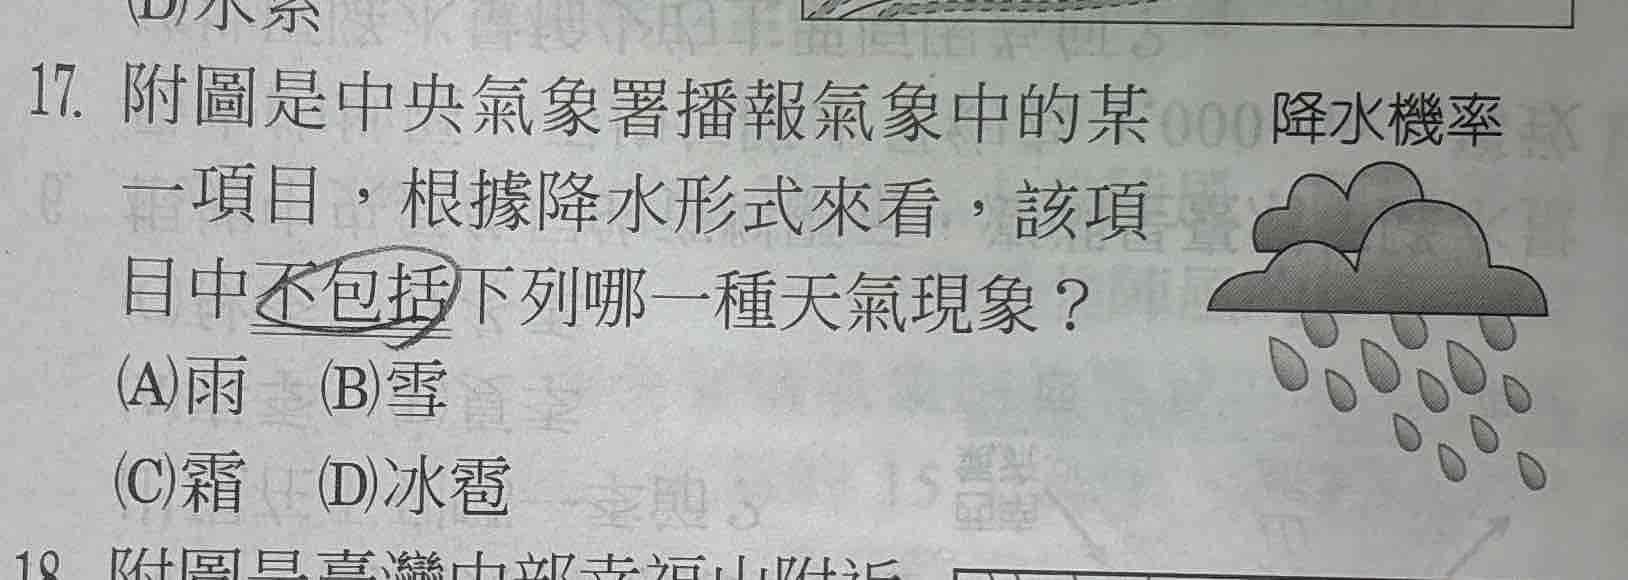 (D)水系
17. 附圖是中央氣象署播報氣象中的某
一項目，根據降水形式來看，該項
目中不包括下列哪一種天氣現象？
降水機率
(A)雨 (B)雪
(C)霜 (D)冰雹
18. 附圖是臺灣中部幸福山附近